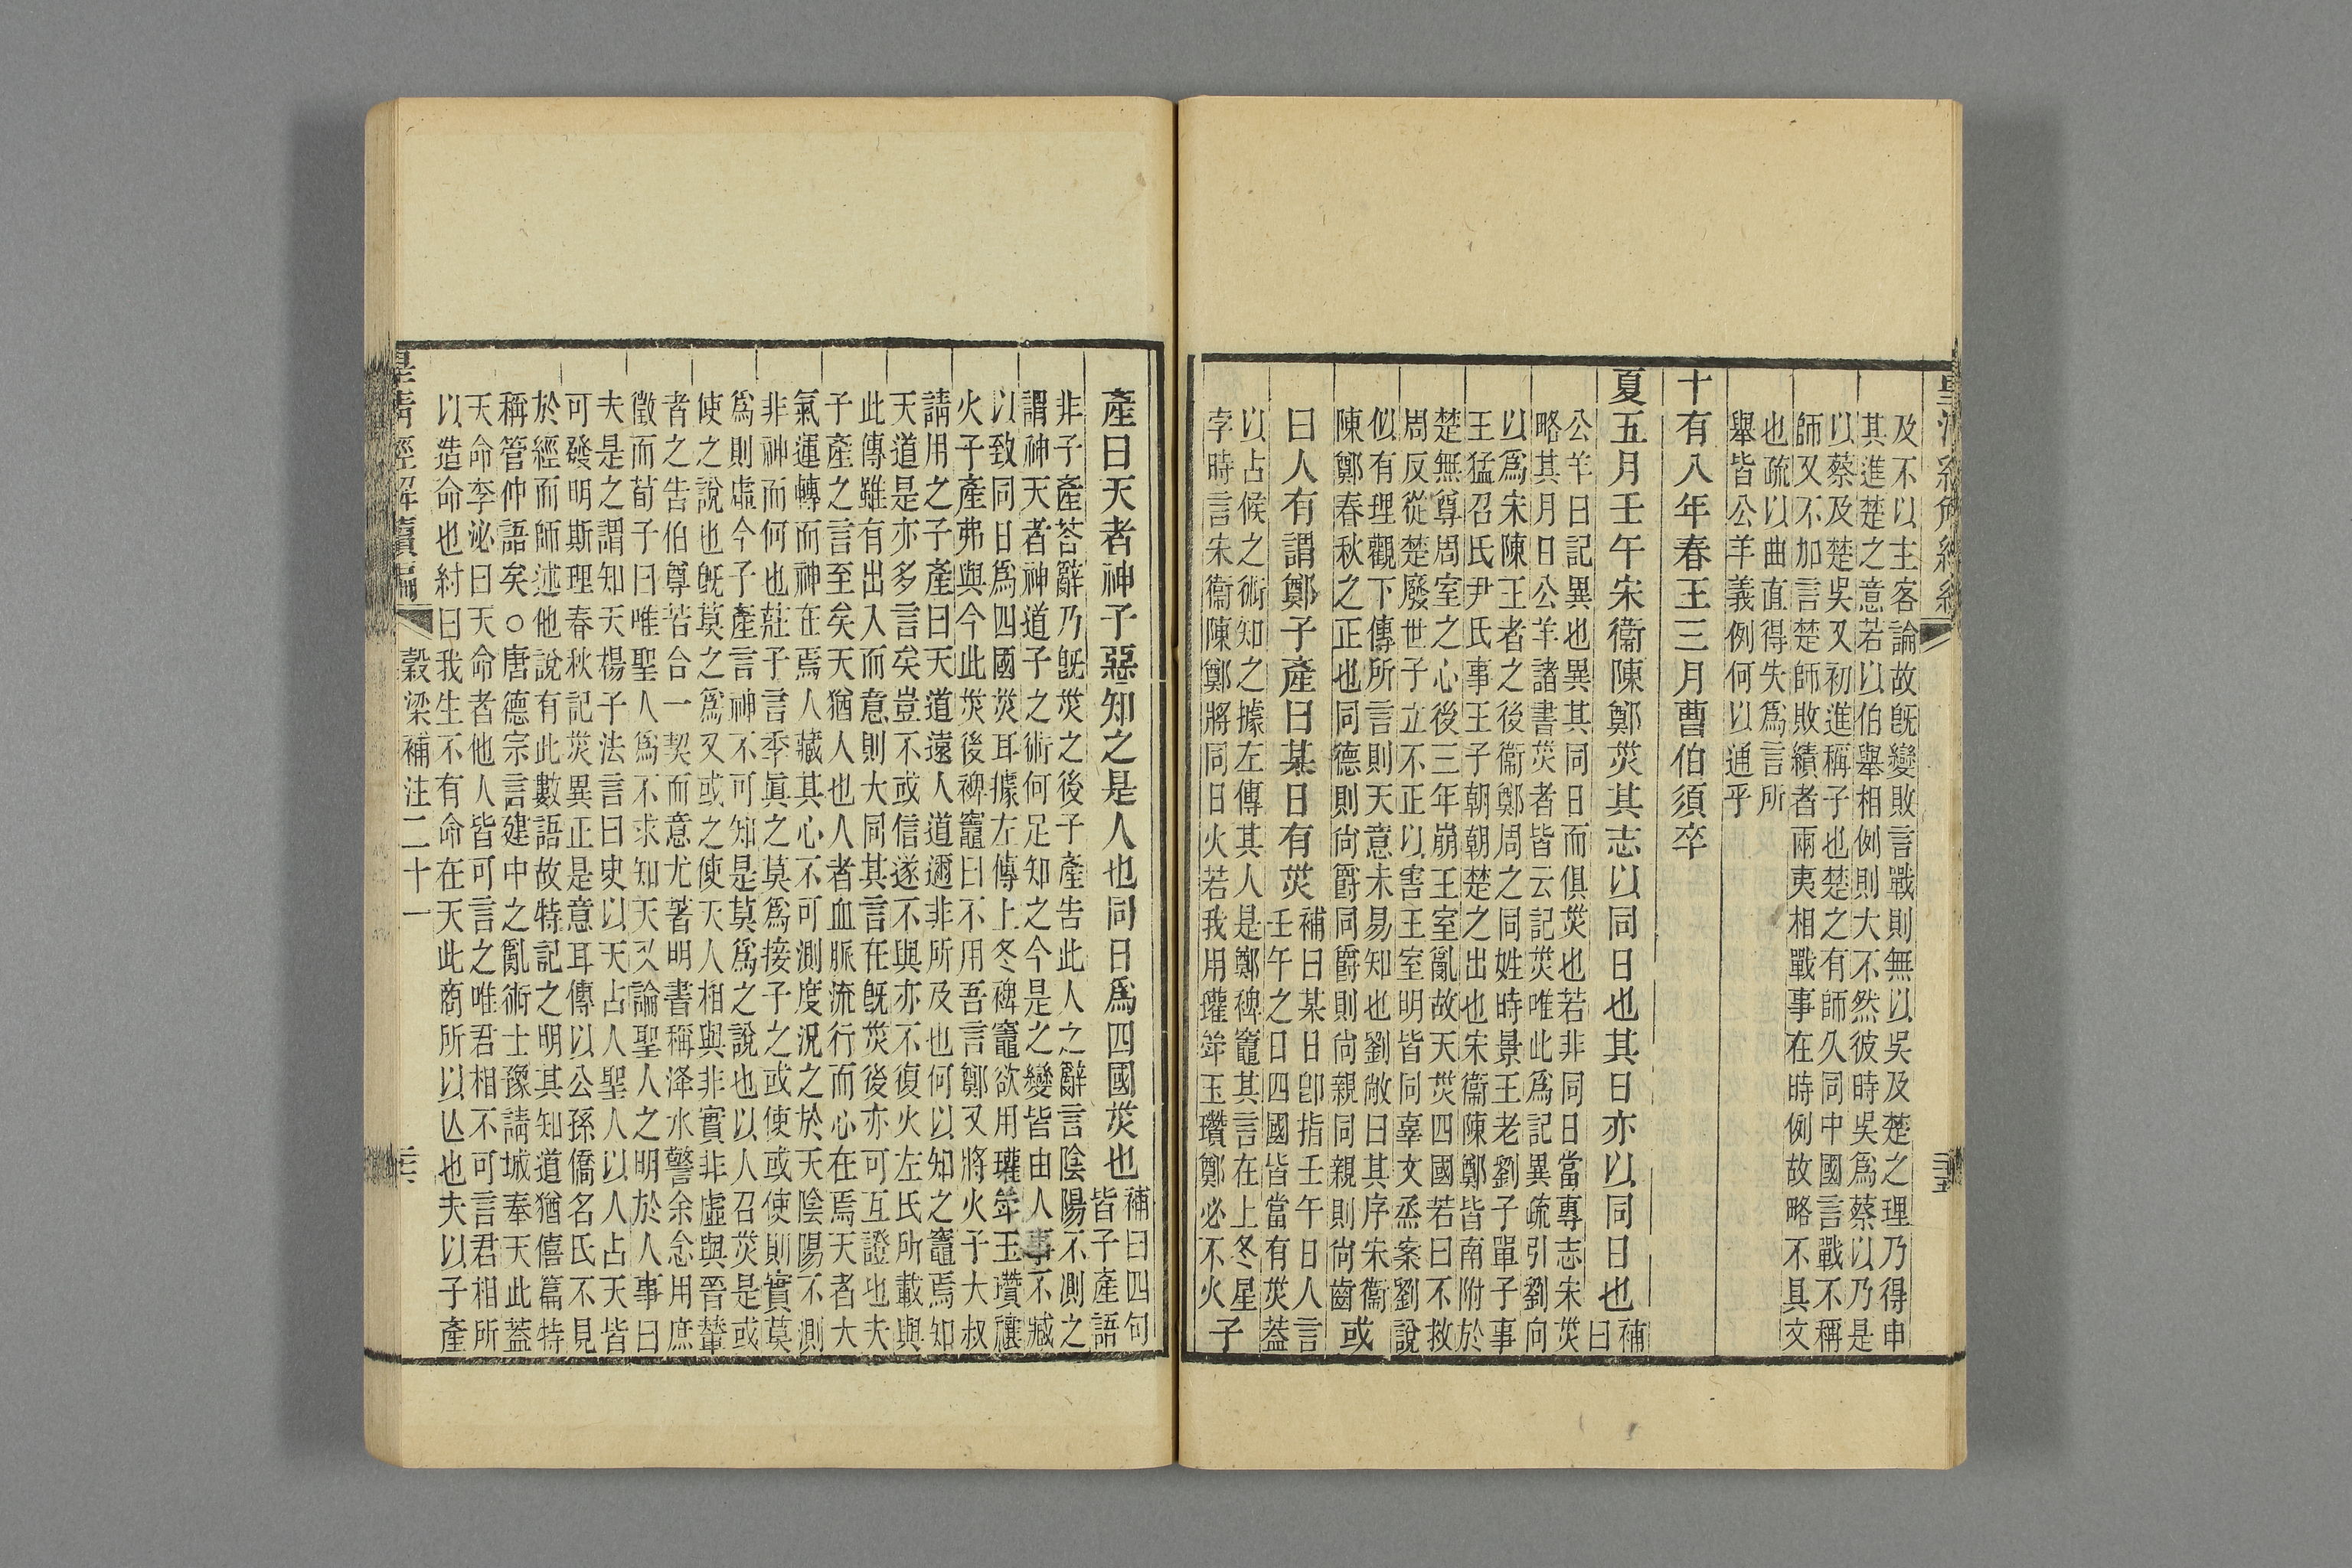 皇清經解續編
三五
及不以主客論故既變敗言戰則無以吳及楚之理乃得申
其進楚之意若以伯舉相例則大不然彼時吳爲蔡以乃是
以蔡及楚吳又初進稱子也楚之有師久同中國言戰不稱
師又不加言楚師敗績者兩夷相戰事在時例故略不具文
也疏以曲直得失爲言所
舉皆公羊義例何以通乎
十有八年春王三月曹伯須卒
夏五月壬午宋衞陳鄭災其志以同日也其日亦以同日也
補
曰
公羊曰記異也異其同日而俱災也若非同日當專志宋災
略其月日公羊諸書災者皆云記災唯此爲記異疏引劉向
以爲宋陳王者之後衞鄭周之同姓時景王老劉子單子事
王猛召氏尹氏事王子朝朝楚之出也宋衞陳鄭皆南附於
楚無尊周室之心後三年崩王室亂故天災四國若曰不救
周反從楚廢世子立不正以害王室明皆同辠文烝案劉說
似有理觀下傳所言則天意未易知也劉敞曰其序宋衞
陳鄭春秋之正也同德則尙爵同爵則尙親同親則尙齒
或
曰人有謂鄭子產曰某日有災
補曰某日卽指壬午日人言
壬午之日四國皆當有災蓋
以占候之術知之據左傳其人是鄭裨竈其言在上冬星
孛時言宋衞陳鄭將同日火若我用瓘斝玉瓚鄭必不火
子
產曰天者神子惡知之是人也同日爲四國災也
補曰四句
皆子產語
非子產荅辭乃既災之後子產告此人之辭言陰陽不測之
謂神天者神道子之術何足知之今是之變皆由人事不臧
以致同日爲四國災耳據左傳上冬裨竈欲用瓘斝玉瓚禳
火子產弗與今此災後裨竈曰不用吾言鄭又將火子大叔
請用之子產曰天道遠人道邇非所及也何以知之竈焉知
天道是亦多言矣豈不或信遂不與亦不復火左氏所載與
此傳雖有出入而意則大同其言在既災後亦可互證也夫
子產之言至矣天猶人也人者血脈流行而心在焉天者大
氣運轉而神在焉人藏其心不可測度況之於天陰陽不測
非神而何也莊子言季眞之莫爲接子之或使或使則實莫
爲則虛今子產言神不可知是莫爲之說也以人召災是或
使之說也既莫之爲又或之使天人相與非實非虛與晉輦
者之告伯尊苦合一契而意尤著明書稱洚水警余念用庶
徵而荀子曰唯聖人爲不求知天又論聖人之明於人事曰
夫是之謂知天楊子法言曰史以天占人聖人以人占天皆
可發明斯理春秋記災異正是意耳傳以公孫僑名氏不見
於經而師述他說有此數語故特記之明其知道猶僖篇特
稱管仲語矣○唐德宗言建中之亂術士豫請城奉天此蓋
天命李泌曰天命者他人皆可言之唯君相不可言君相所
以造命也紂曰我生不有命在天此商所以亾也夫以子產
皇清經解續編
穀梁補注二十一
三六